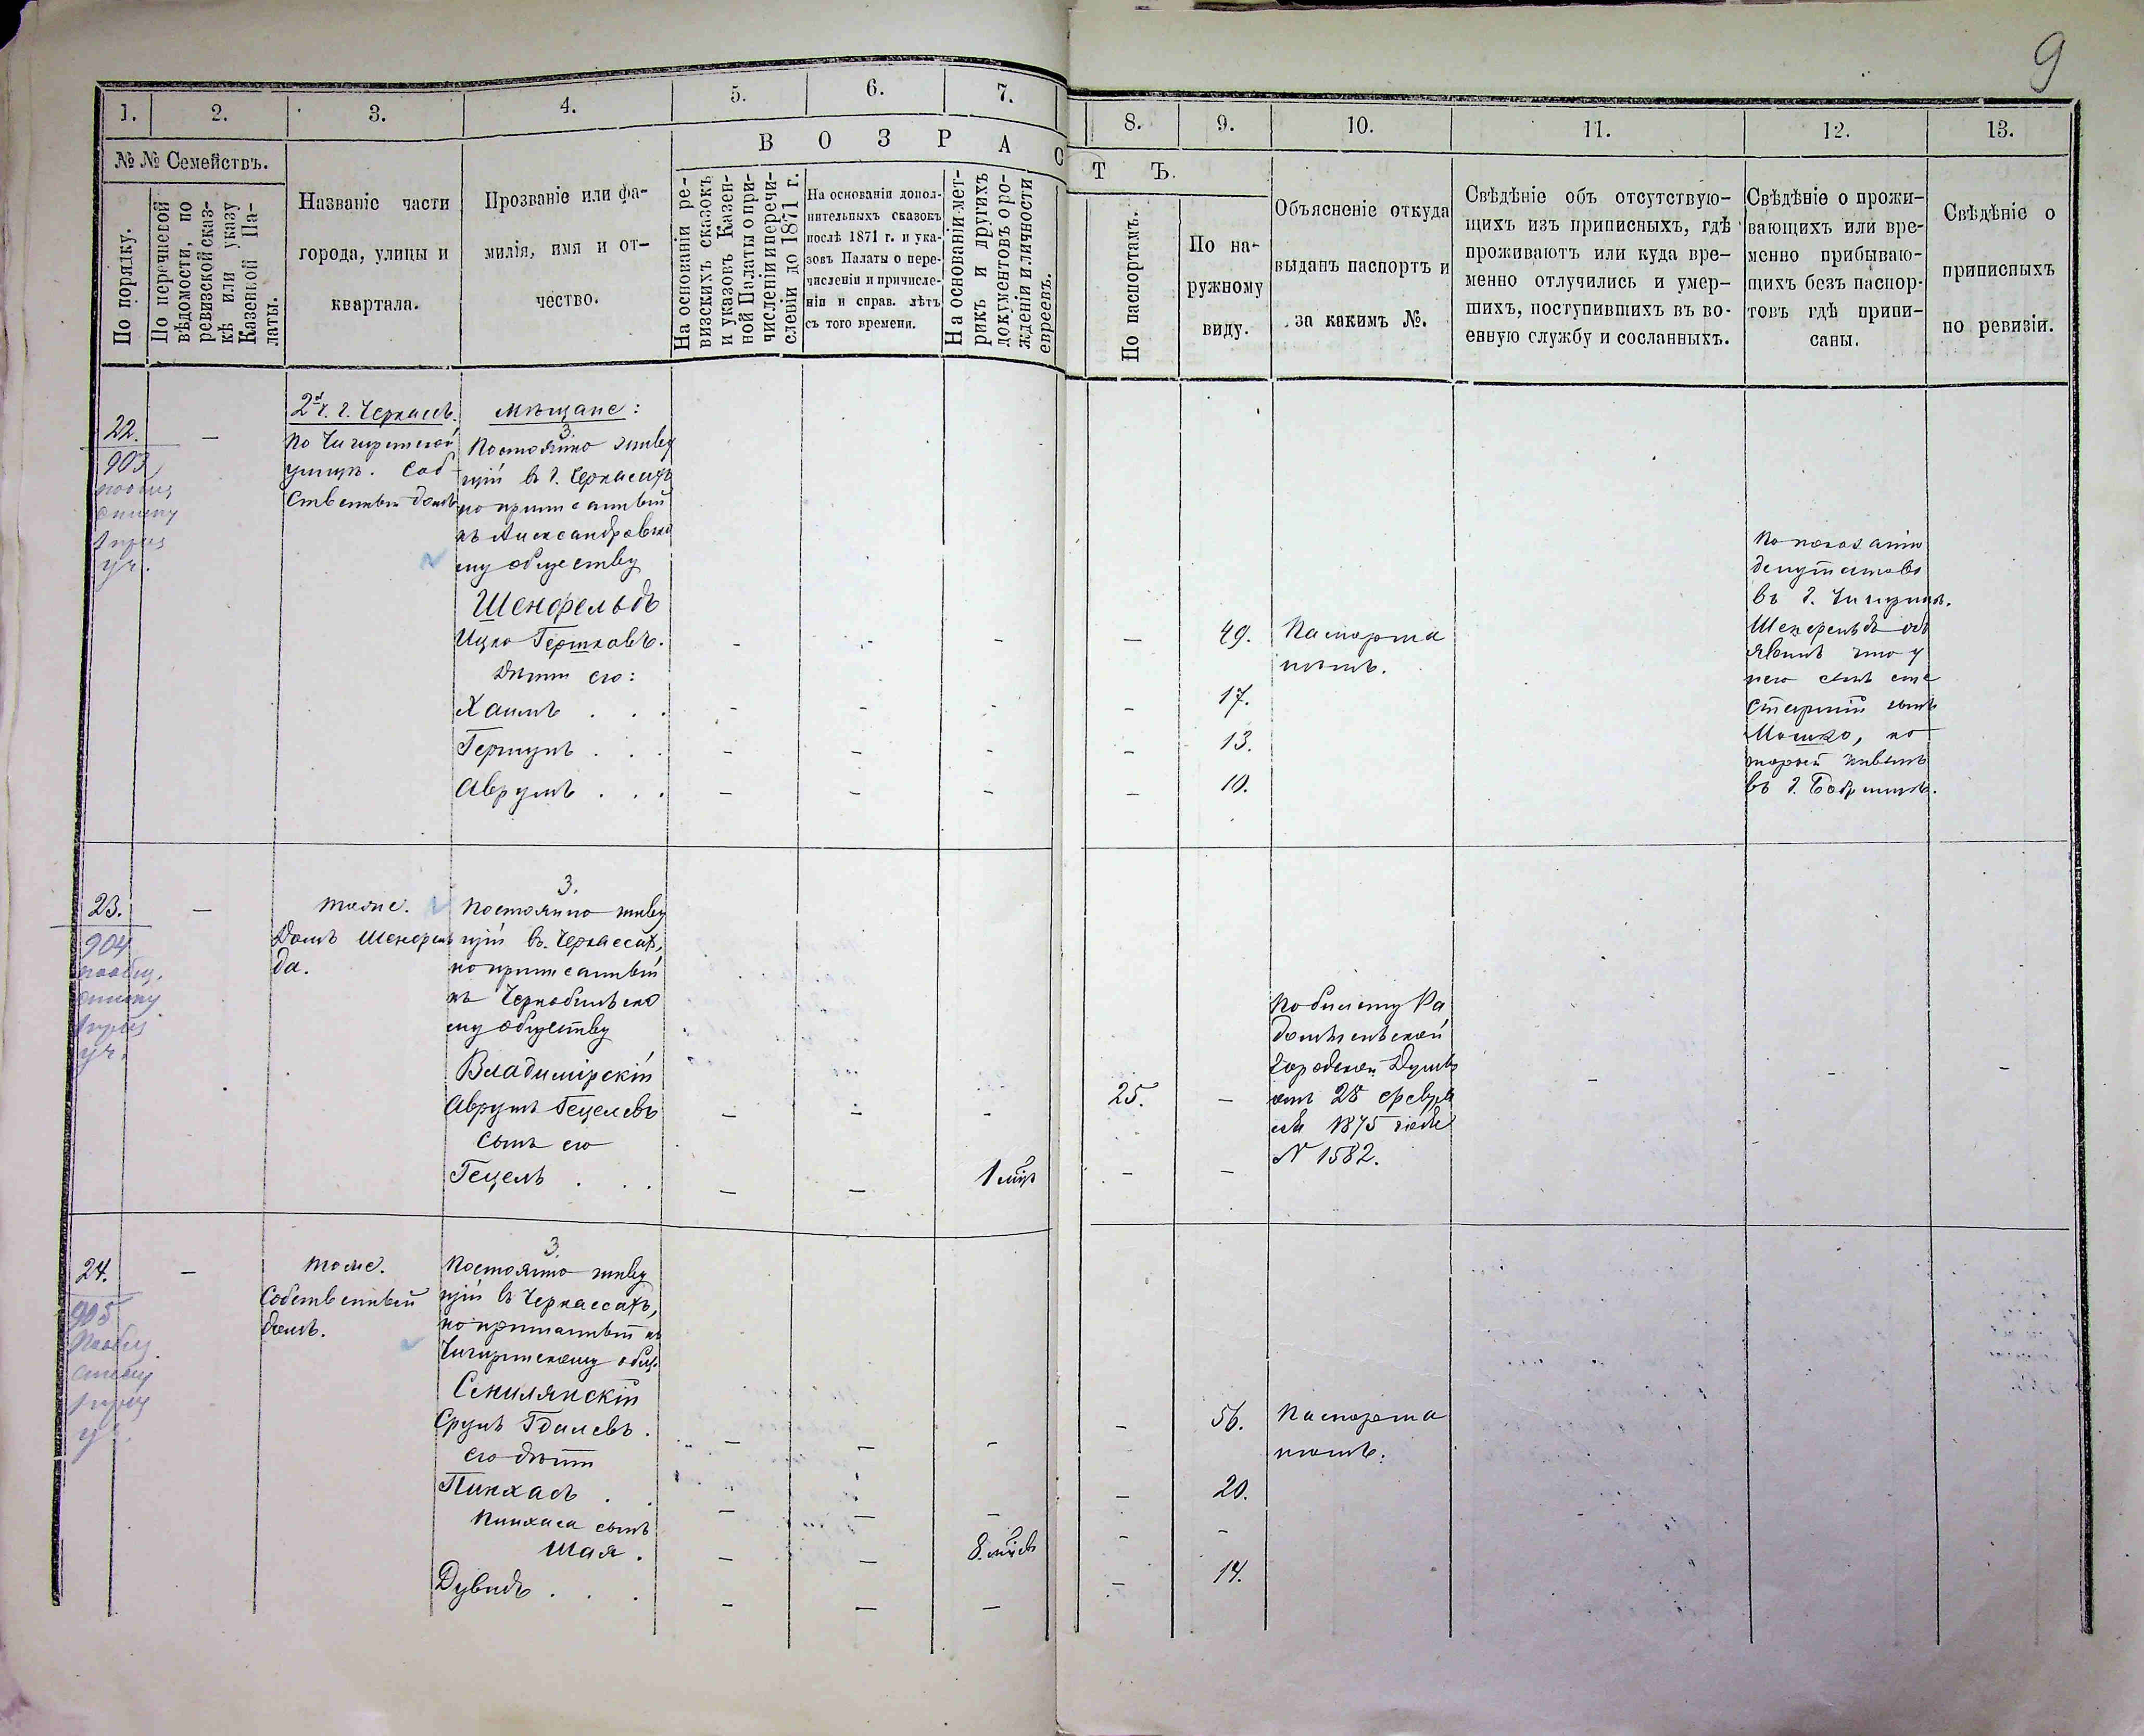 9
1.
2.
3.
4.
5.
6.
7.
8.
9.
10.
11.
12.
13.
№ № Семействъ.
В О З Р А С Т Ъ.
По порядку.
По перечневой
вѣдомости, по
ревизской сказ-
кѣ или указу
Казенной Па-
латы.
Названіе части
города, улицы и
квартала.
Прозваніе или фа-
милія, имя и от-
чество.
На основаніи ре-
визскихъ сказокъ
и указовъ Казен-
ной Палаты о при-
численіи и перечи-
сленіи до 1871 г.
На основаніи допол-
нительныхъ сказокъ
послѣ 1871 г. и ука-
зовъ Палаты о пере-
численіи и причисле-
ніи и справ. лѣтъ
съ того времени.
На основаніи мет-
рикъ и другихъ
документовъ о ро-
жденіи и личности
евреевъ.
По паспортамъ.
По на-
ружному
виду.
Объясненіе откуда
выданъ паспортъ и
за какимъ №.
Свѣдѣніе объ отсутствую-
щихъ изъ приписныхъ, гдѣ
проживаютъ или куда вре-
менно отлучились и умер-
шихъ, поступившихъ въ во-
енную службу и сосланныхъ.
Свѣдѣніе о прожи-
вающихъ или вре-
менно прибываю-
щихъ безъ паспор-
товъ гдѣ припи-
саны.
Свѣдѣніе о
приписныхъ
по ревизіи.
22.
903
—
2й ч. г. Черкассъ.
По Чигиринской
улицѣ. Соб-
ственный домъ
Мѣщане:
3.
Постоянно живу
щій въ г. Черкасахъ
но приписанный
къ Александровско
му обществу
Шенфельдъ
Ицко Гершковъ. - - - — 49. Паспорта
нѣтъ.
Дѣти его:
Хаимъ . . . - - - - 17.
Гершунъ . . . - - - - 13.
Аврумъ . . . - - - - 10.
По показанію
депутатовъ
въ г. Чигиринѣ.
Шенфельдъ объ
явилъ что у
него есть еще
старшій сынъ
Мошко, ко
торый живетъ
въ г. Бобринцѣ.
23.
904
—
тоже.
Домъ Шенфель
да.
3.
Постоянно живу
щій въ Черкассахъ,
но приписанный
къ Чернобыльско
му обществу
Владимірскій
Аврумъ Гецелевъ — - - 25. — - - -
сынъ его
Гецель . . . — — 1 мѣс — —
По билету Ра
домысльской
городской Думы
отъ 28 февра
ля 1875 года
№ 1582.
24.
905
—
тоже.
Собственный
домъ.
3.
Постоянно живу
щій въ Черкассахъ,
но приписанный къ
Чигиринскому общ.
Сенилянскій
Срулъ Гдалевъ . — — - - 56. Паспорта
нѣтъ.
его дѣти
Пинхасъ . . — — — — 20.
Пинхаса сынъ
Шая . — — 8 мѣс - -
Дувидъ . . . — — — — 14.